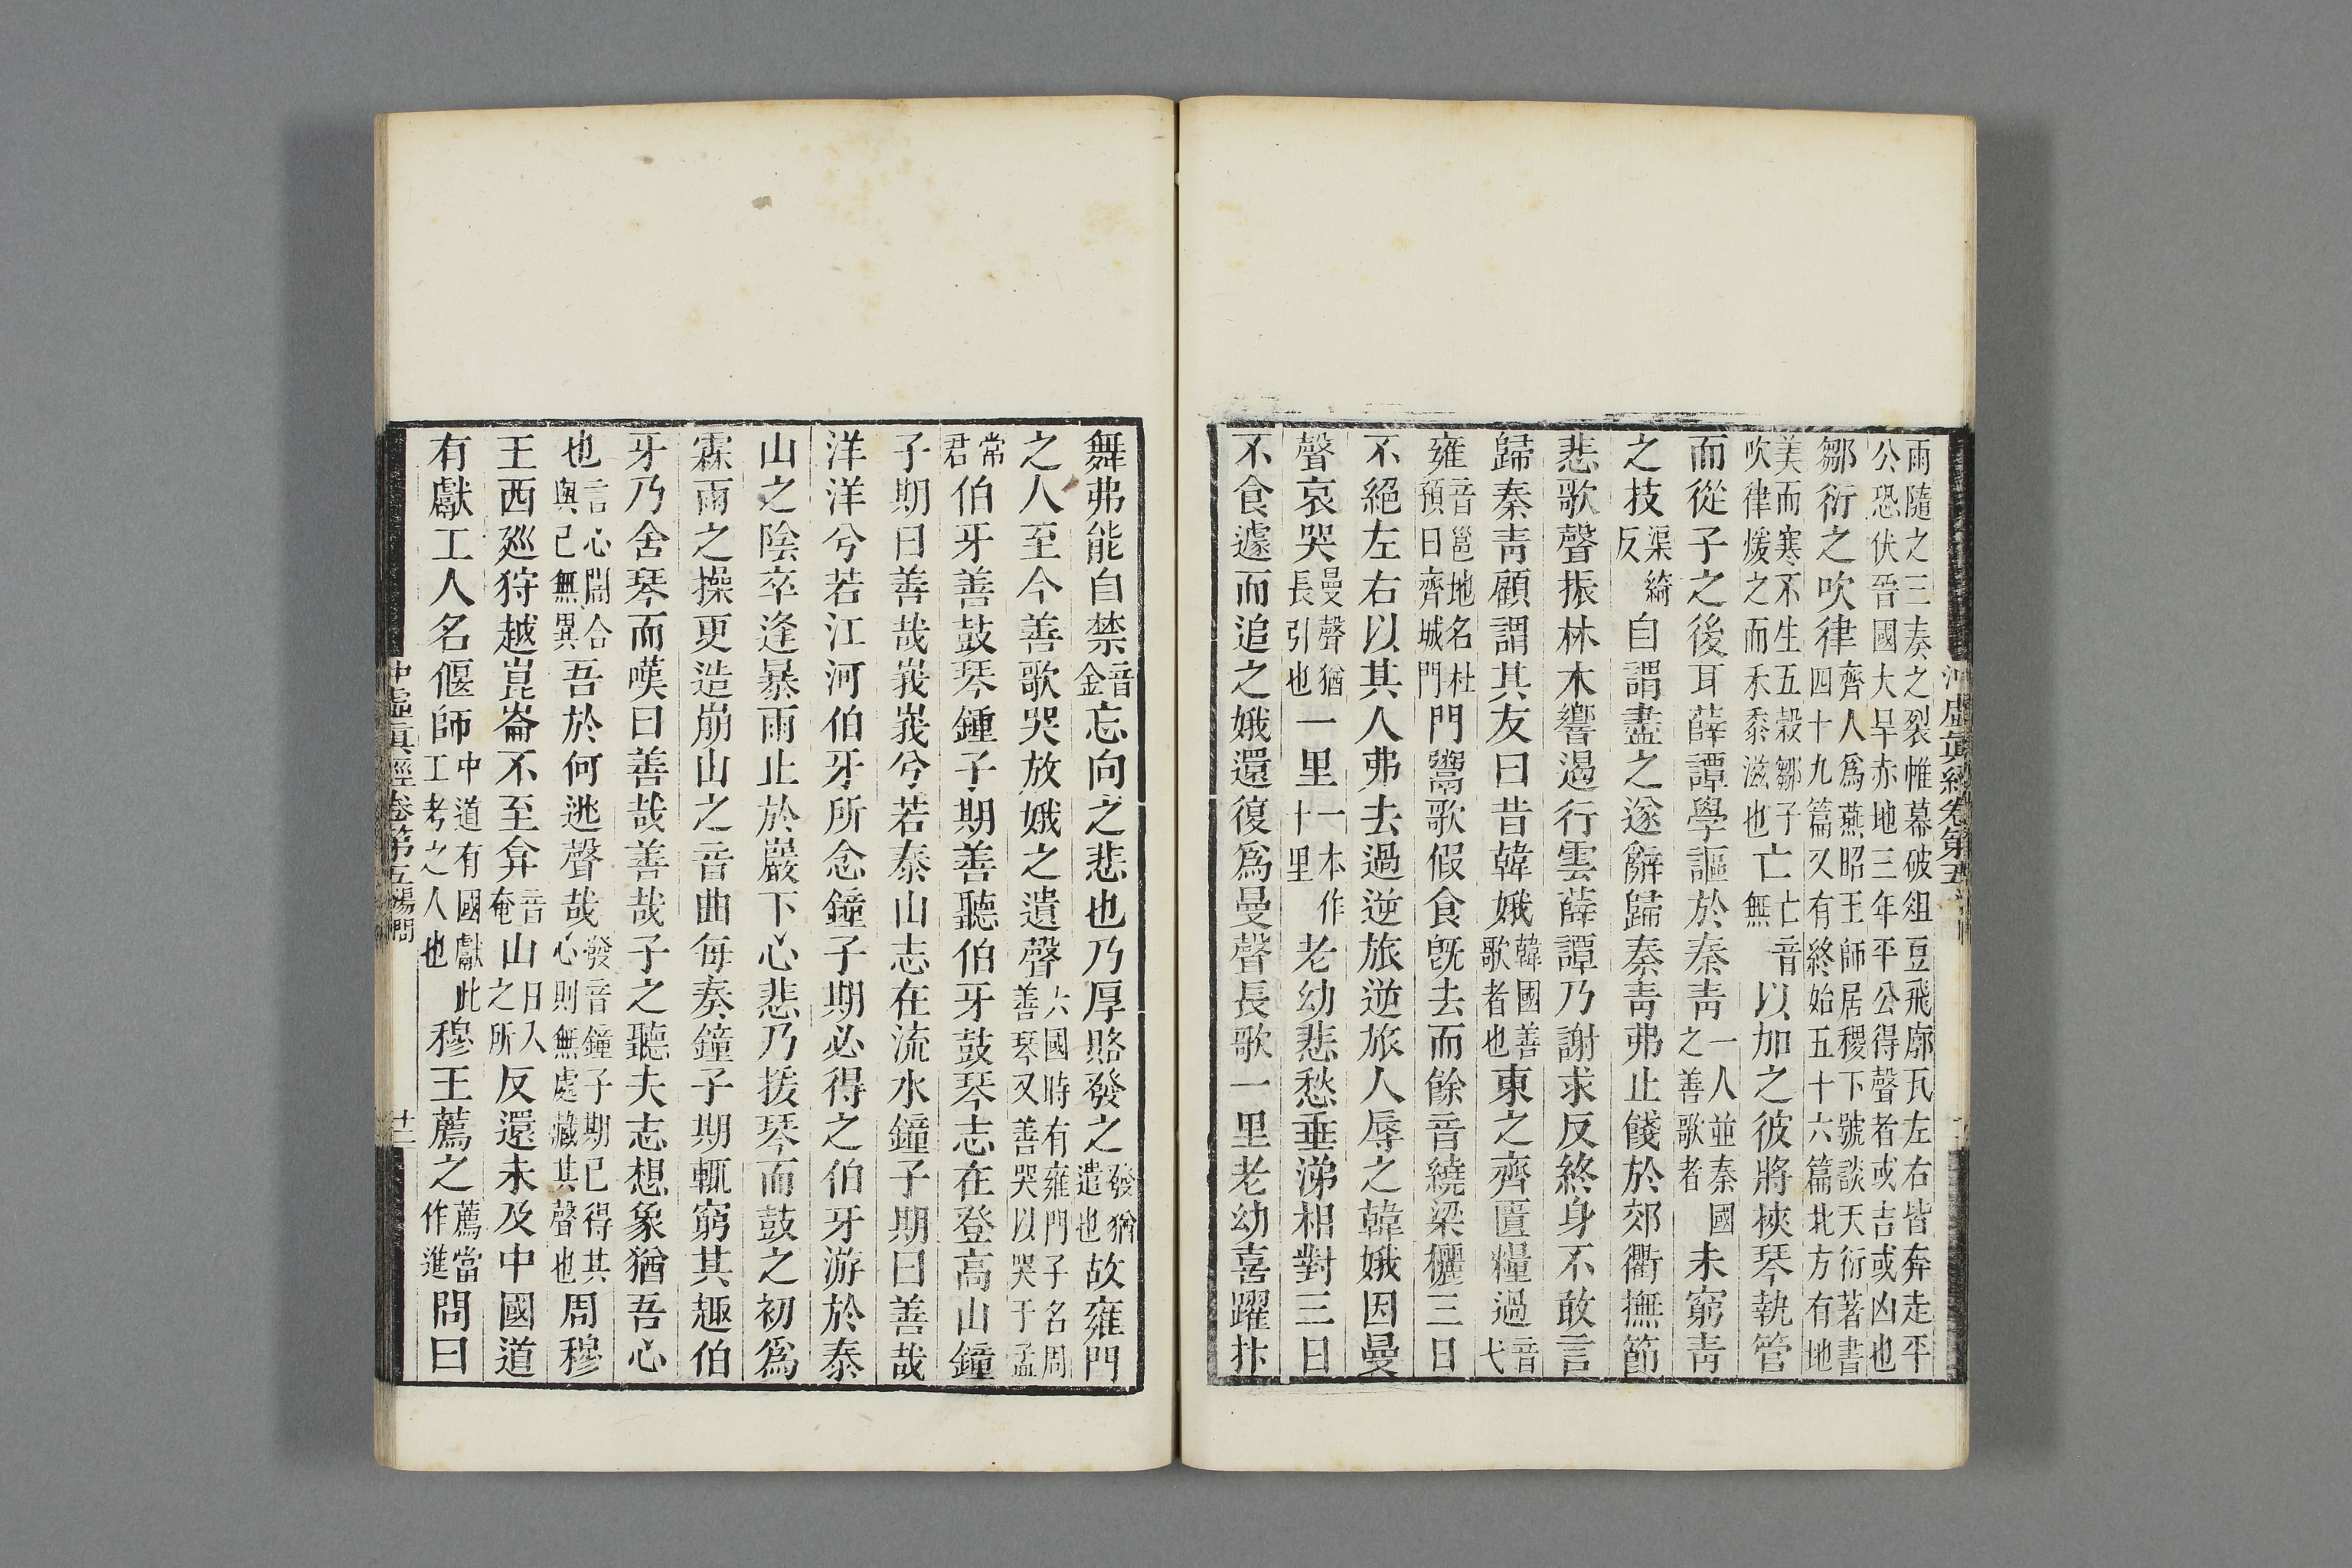 雨隨之三奏之裂帷幕破俎豆飛廊瓦左右皆奔走平
公恐伏晉國大旱赤地三年平公得聲者或吉或凶也
鄒衍之吹律齊人爲燕昭王師居稷下號談天衍著書四十九篇又有終始五十六篇北方有地
美而寒不生五穀鄒子吹律煖之而禾黍滋也亡亡音無以加之彼將挾琴執管
而從子之後耳薛譚學謳於秦靑一人並秦國之善歌者未窮靑
之技渠綺反自謂盡之遂辭歸秦靑弗止餞於郊衢撫節
悲歌聲振林木響遏行雲薛譚乃謝求反終身不敢言
歸秦靑顧謂其友曰昔韓娥韓國善歌者也東之齊匱糧過音弋
雍音邕地名杜預曰齊城門門鬻歌假食旣去而餘音繞梁欐三日
不絕左右以其人弗去過逆旅逆旅人辱之韓娥因曼
聲哀哭曼聲猶長引也一里一本作十里老幼悲愁垂涕相對三日
不食遽而追之娥還復爲曼聲長歌一里老幼喜躍抃
舞弗能自禁音金忘向之悲也乃厚賂發之發猶遣也故雍門
之人至今善歌哭放娥之遺聲六國時有雍門子名周善琴又善哭以哭于孟
常君伯牙善鼓琴鍾子期善聽伯牙鼓琴志在登高山鐘
子期曰善哉峩峩兮若泰山志在流水鐘子期曰善哉
洋洋兮若江河伯牙所念鐘子期必得之伯牙游於泰
山之陰卒逢暴雨止於巖下心悲乃援琴而鼓之初爲
霖雨之操更造崩山之音曲每奏鐘子期輒窮其趣伯
牙乃舍琴而嘆曰善哉善哉子之聽夫志想象猶吾心
也言心闇合與己無異吾於何逃聲哉發音鐘子期已得其心則無處藏其聲也周穆
王西廵狩越崑崙不至弇音奄山日入之所反還未及中國道
有獻工人名偃師中道有國獻此工考之人也穆王薦之薦當作進問曰
冲虛眞經卷第五湯問 廿二